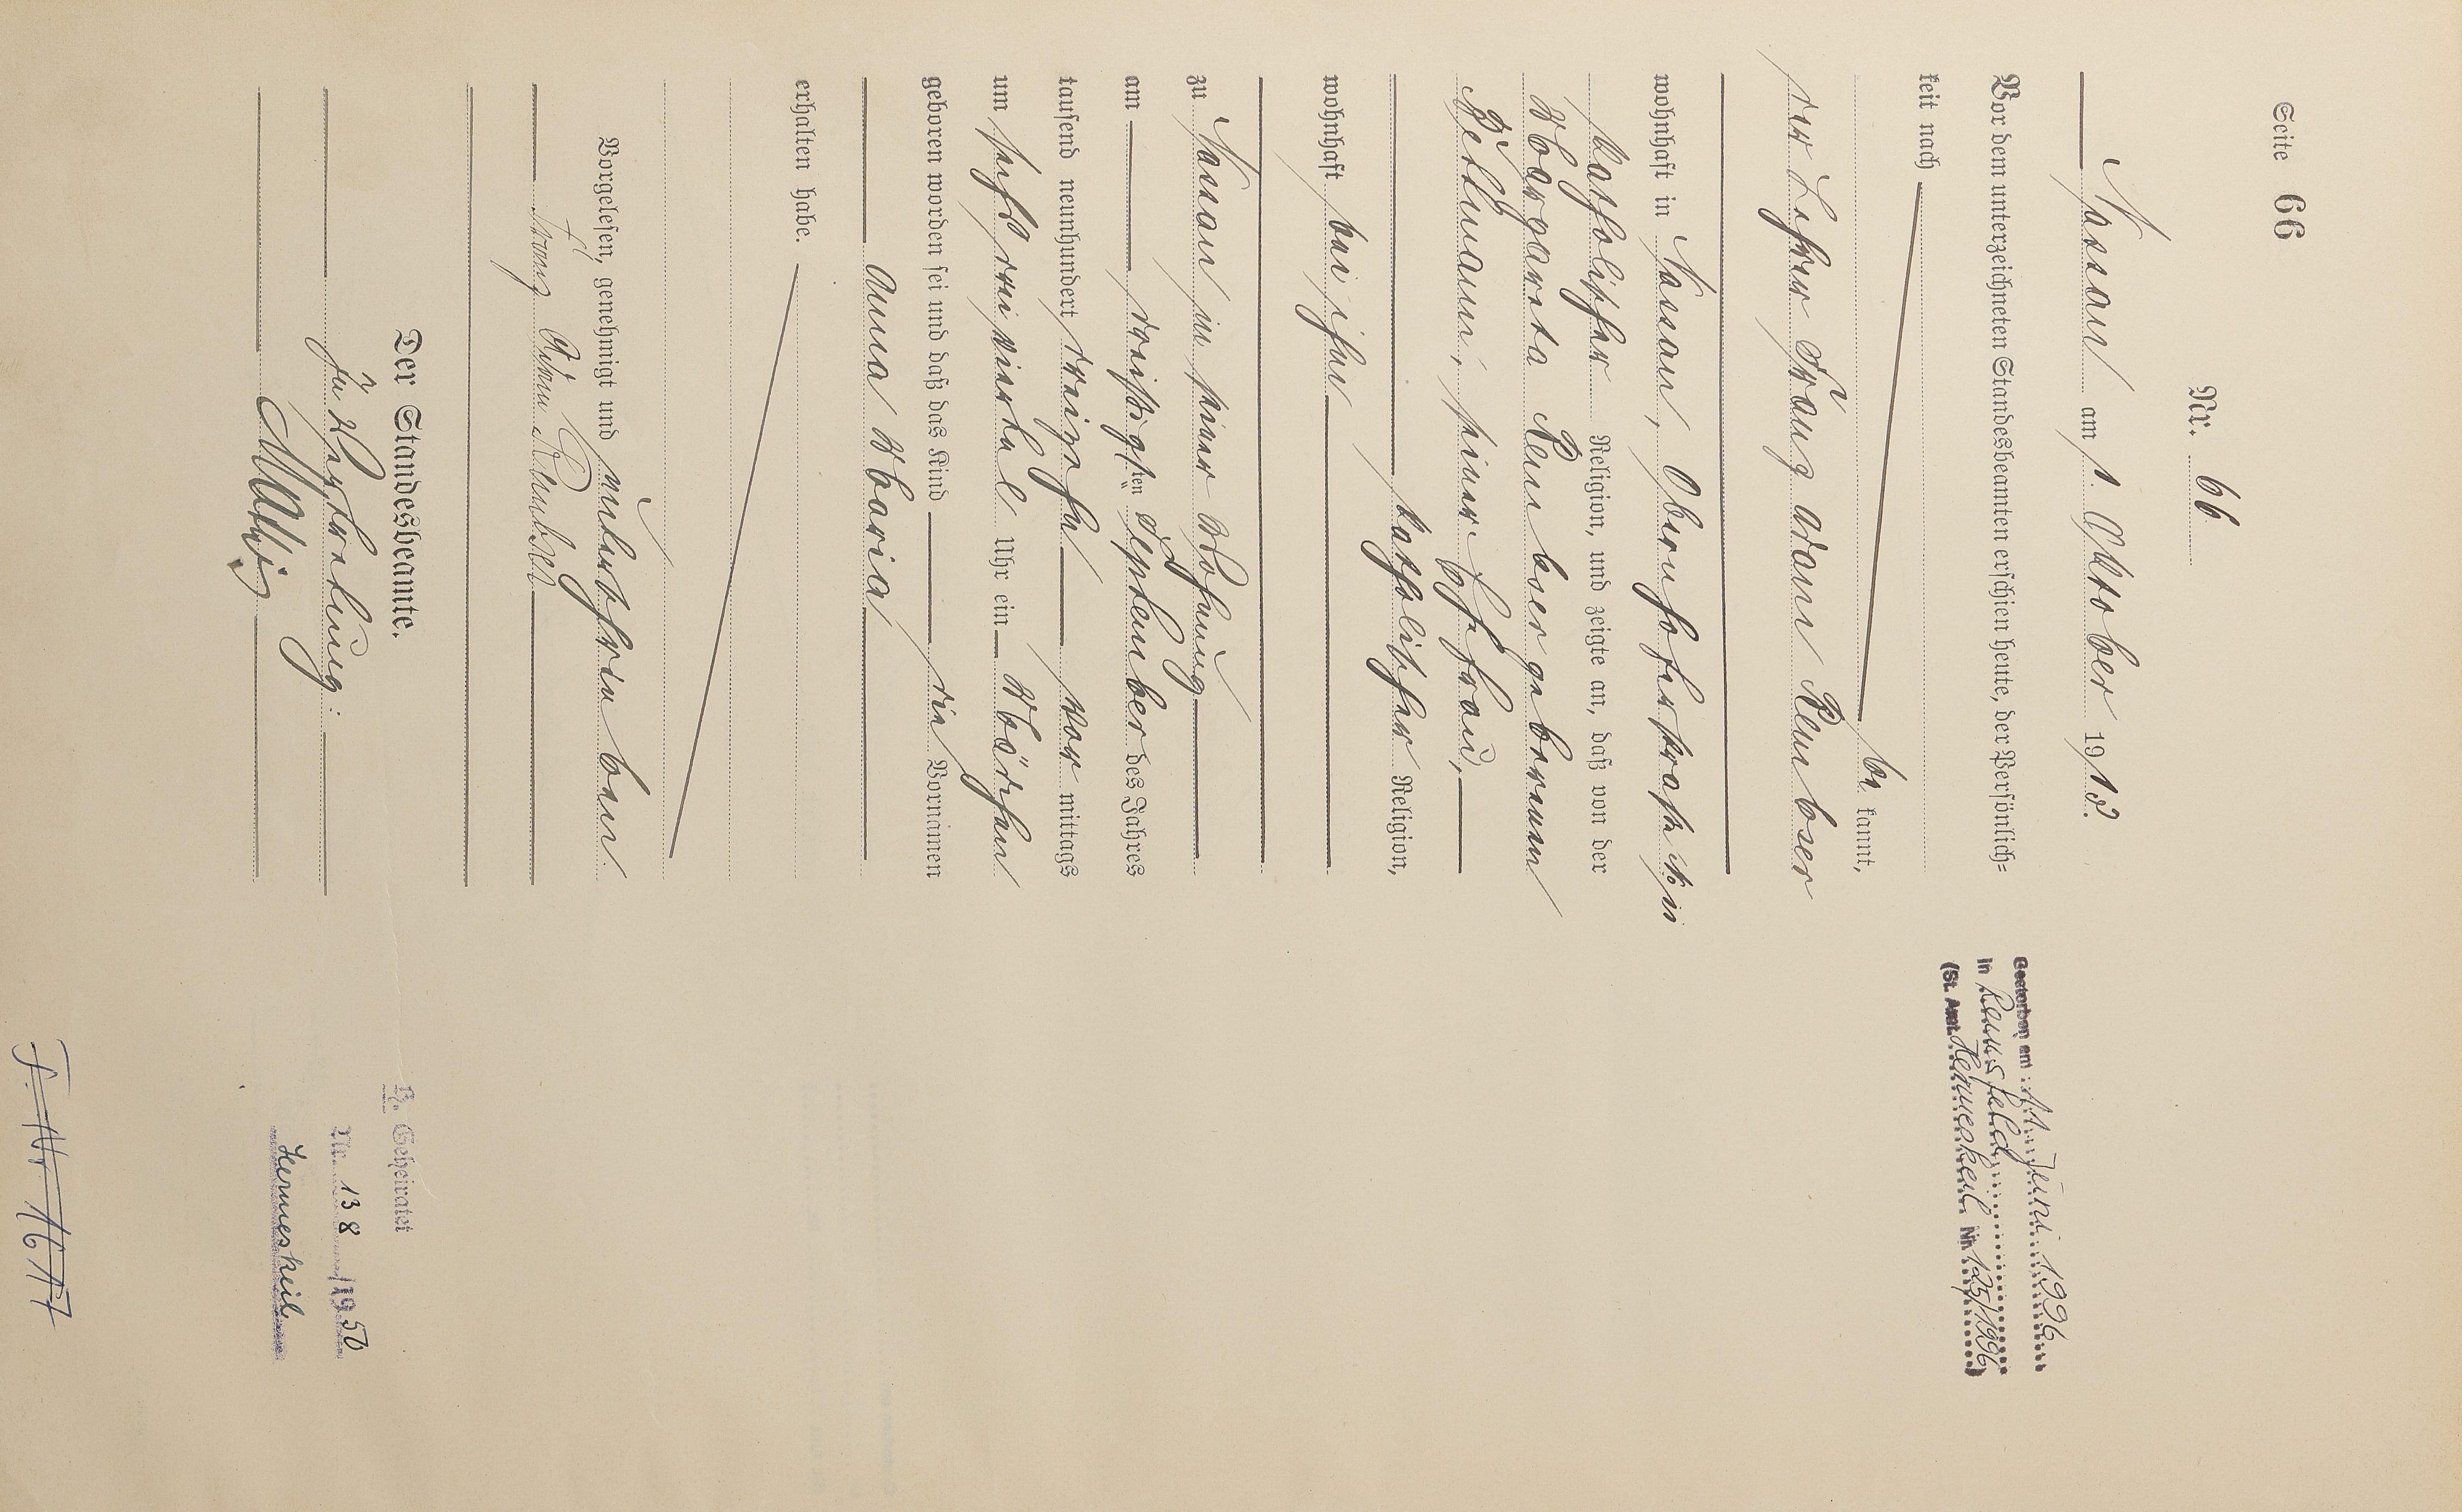 Seite 66
Nr. 66
Nassau am 1. Oktober 1913.
Vor dem unterzeichneten Standesbeamten erschien heute, der Persönlich-
keit nach
be kannt,
der Lehrer Franz Adam Rembser
wohnhaft in Nassau, Obernhoferstraße
katholischer Religion, und zeigte an, daß von der
Margareta Rembser geborenen
Bellmann, seiner Ehefrau,
katholischer Religion,
wohnhaft bei ihm
zu Nassau in seiner Wohnung
am dreißigsten September des Jahres
tausend neunhundert dreizehn vor mittags
um sechs drei viertel Uhr ein Mädchen
geboren worden sei und daß das Kind die Vornamen
Anna Maria
erhalten habe.
Vorgelesen, genehmigt und unterschrieben
Franz Adam Rembser
Der Standesbeamte.
In Vertretung:
Gestorben am 11. Juni 1996
in Reinsfeld
(St. Amt Hermeskeil Nr. 125/1996)
Geheiratet
Nr. 138 /1950
Hermeskeil